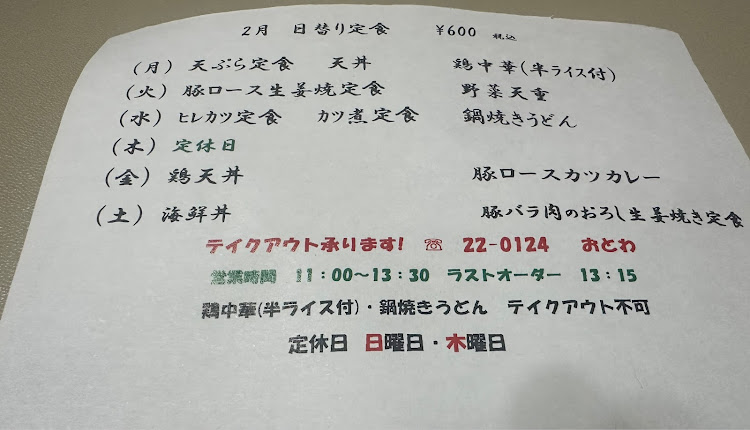 2月 日替り定食 ¥600 税込
(月) 天ぷら定食 天丼 鶏中華(半ライス付)
(火) 豚ロース生姜焼定食 野菜天重
(水) ヒレカツ定食 カツ煮定食 鍋焼きうどん
(木) 定休日
(金) 鶏天丼 豚ロースカツカレー
(土) 海鮮丼 豚バラ肉のおろし生姜焼き定食
テイクアウト承ります! ☏ 22-0124 おとわ
営業時間 11:00〜13:30 ラストオーダー 13:15
鶏中華(半ライス付)・鍋焼きうどん テイクアウト不可
定休日 日曜日・木曜日